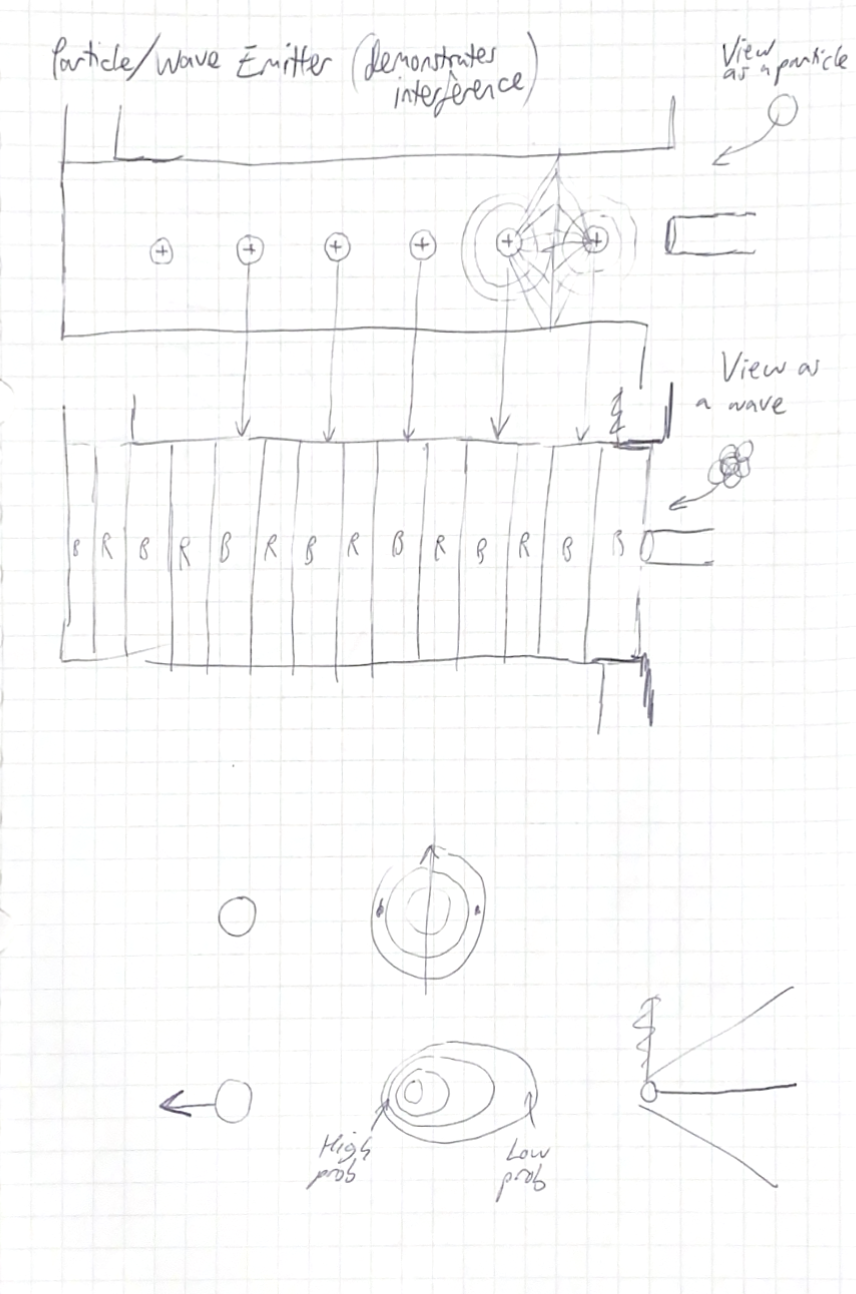 Particle/Wave Emitter (demonstrates
interference)
View
as a particle
+ + + + + +
View as
a wave
B R B R B R B R B R B R B B
High
prob
Low
prob